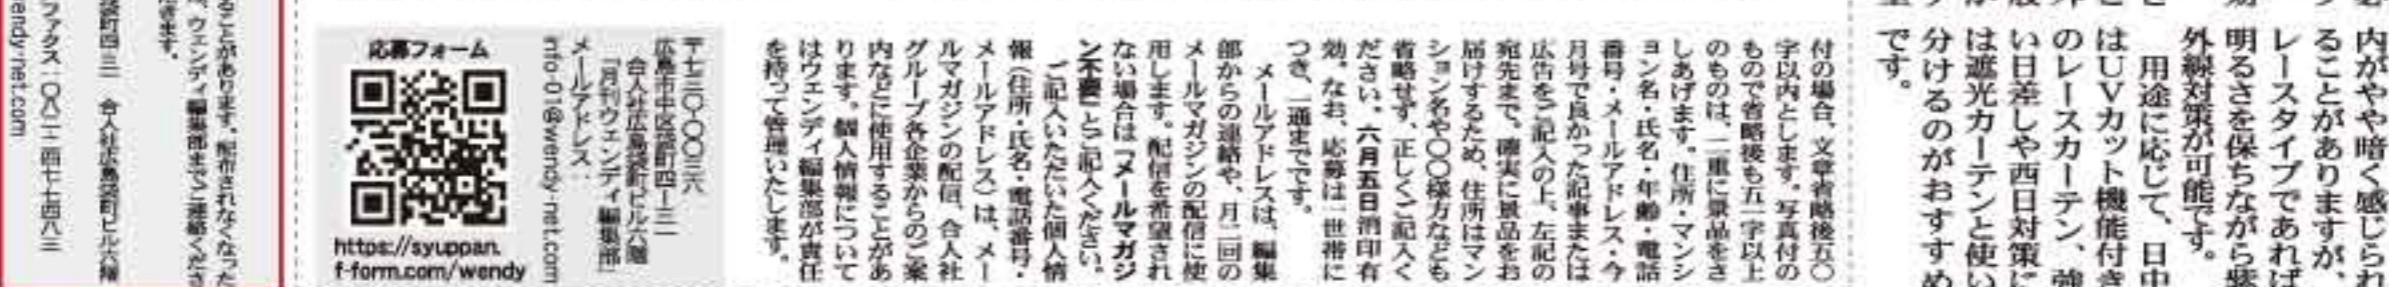 内がやや暗く感じられ
ることがありますが、
レースタイプであれば
明るさを保ちながら紫
外線対策が可能です。
用途に応じて、日中
はUVカット機能付き
のレースカーテン、強
い日差しや西日対策に
は遮光カーテンと使い
分けるのがおすすめ
です。
付の場合、文章省略後五〇
字以内とします。写真付の
もので省略後も五一字以上
のものは、二重に景品をさ
しあげます。住所・マンシ
ョン名・氏名・年齢・電話
番号・メールアドレス・今
月号で良かった記事または
広告をご記入の上、左記の
宛先まで。確実に景品をお
届けするため、住所はマン
ション名や〇〇様方なども
省略せず、正しくご記入く
ださい。六月五日消印有
効。なお、応募は一世帯に
つき、一通までです。
メールアドレスは、編集
部からの連絡や、月二回の
メールマガジンの配信に使
用します。配信を希望され
ない場合は「メールマガジ
ン不要」とご記入ください。
ご記入いただいた個人情
報（住所・氏名・電話番号・
メールアドレス）は、メー
ルマガジンの配信、合人社
グループ各企業からのご案
内などに使用することがあ
ります。個人情報について
はウェンディ編集部が責任
を持って管理いたします。
〒七三〇-〇〇三六
広島市中区袋町四-三一
合人社広島袋町ビル六階
「月刊ウェンディ編集部」
メールアドレス:
info-01@wendy-net.com
応募フォーム
https://syuppan.
f-form.com/wendy
ることがあります。配布されなくなった
ウェンディ編集部までご連絡くださ
きます。
袋町四-三一 合人社広島袋町ビル六階
ファクス:〇八二-二四七-七四八三
wendy-net.com